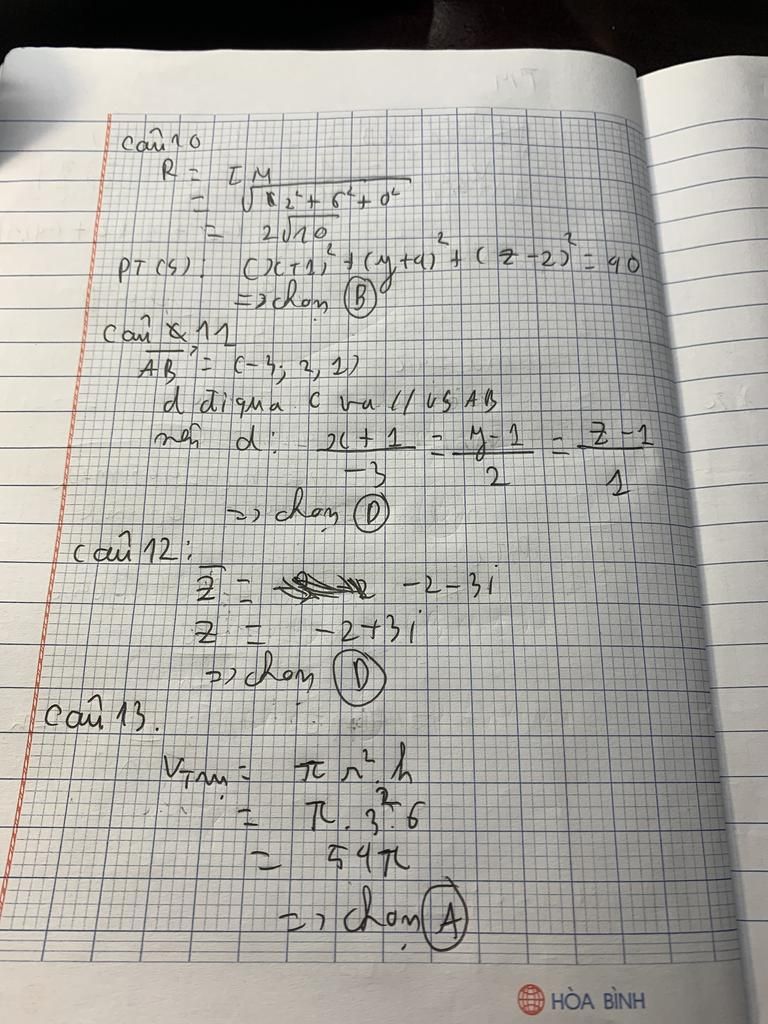 Câu 10
R = IM
= √2² + 6² + 0²
= 2√10
PT (S): (x+1)² + (y+4)² + (z-2)² = 40
=> chọn B
Câu 11
AB = (-3; 2, 1)
d đi qua C và // vs AB
nên d: x+1/-3 = y-1/2 = z-1/1
=> chọn D
Câu 12:
z̅ = -2-3i
z = -2+3i
=> chọn D
Câu 13.
VTrụ = π r².h
= π.3².6
= 54π
=> chọn A
HÒA BÌNH